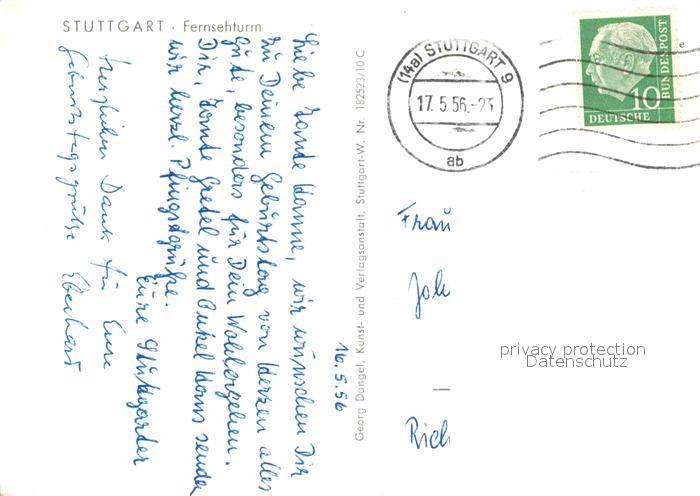 STUTTGART · Fernsehturm
16.5.56
Liebe Tante Hanne, wir wünschen Dir
zu Deinem Geburtstag von Herzen alles
Gute, besonders für Dein Wohlergehen.
Dir, Tante Gretel und Onkel Hans senden
wir herzl. Pfingstgrüße.
Eure Stuttgarter
Herzlichen Dank für Eure
Geburtstagsgrüße Eberhard
Georg Dangel, Kunst- und Verlagsanstalt, Stuttgart-W. Nr. 182523/10 C
(14a) STUTTGART 9
17.5.56.-23
ab
10
DEUTSCHE
BUNDESPOST
e
Frau
Joh
Rich
privacy protection
Datenschutz